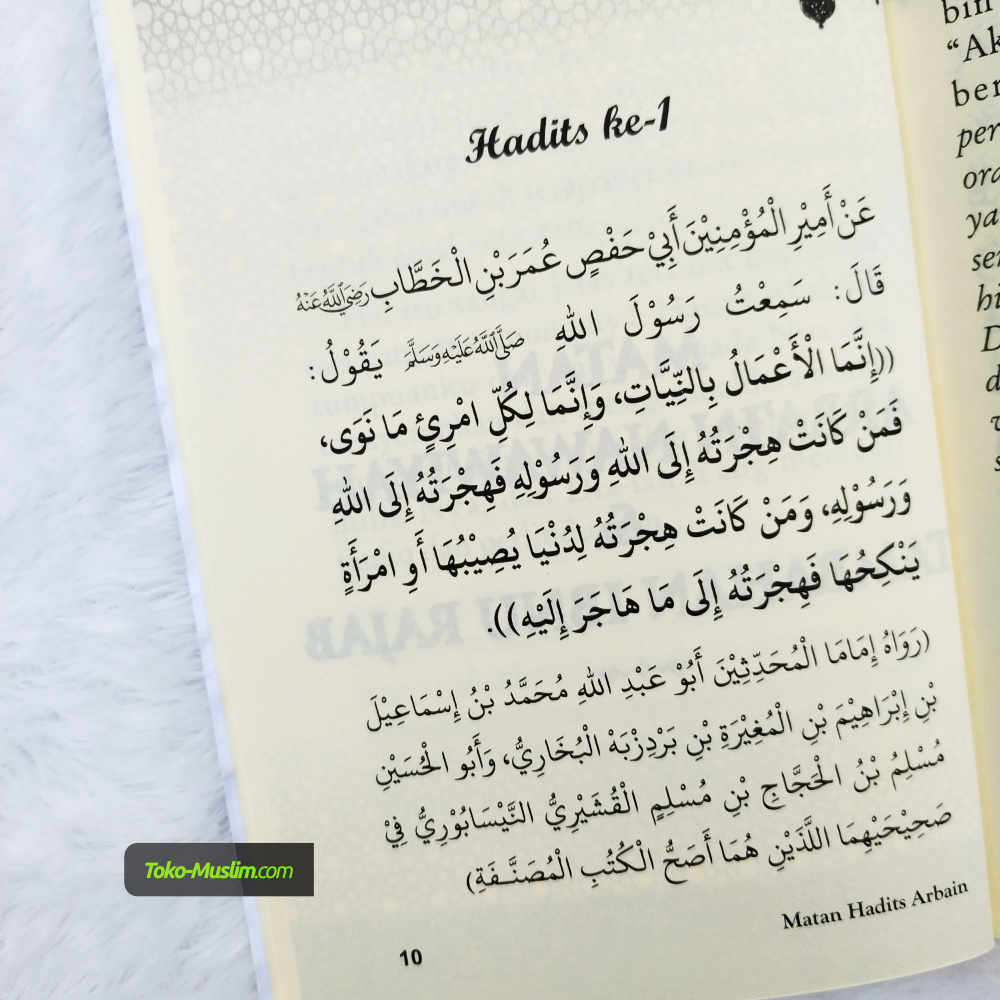 Hadits ke-1
عَنْ أَمِيْرِ الْمُؤْمِنِيْنَ أَبِيْ حَفْصٍ عُمَرَ بْنِ الْخَطَّابِ رَضِيَ اللَّهُ عَنْهُ
قَالَ: سَمِعْتُ رَسُوْلَ اللهِ صَلَّى اللَّهُ عَلَيْهِ وَسَلَّمَ يَقُوْلُ:
((إِنَّمَا الْأَعْمَالُ بِالنِّيَّاتِ، وَإِنَّمَا لِكُلِّ امْرِئٍ مَا نَوَى،
فَمَنْ كَانَتْ هِجْرَتُهُ إِلَى اللهِ وَرَسُوْلِهِ فَهِجْرَتُهُ إِلَى اللهِ
وَرَسُوْلِهِ، وَمَنْ كَانَتْ هِجْرَتُهُ لِدُنْيَا يُصِيْبُهَا أَوِ امْرَأَةٍ
يَنْكِحُهَا فَهِجْرَتُهُ إِلَى مَا هَاجَرَ إِلَيْهِ)).
(رَوَاهُ إِمَامَا الْمُحَدِّثِيْنَ أَبُوْ عَبْدِ اللهِ مُحَمَّدُ بْنُ إِسْمَاعِيْلَ
بْنِ إِبْرَاهِيْمَ بْنِ الْمُغِيْرَةِ بْنِ بَرْدِزْبَهْ الْبُخَارِيُّ، وَأَبُو الْحُسَيْنِ
مُسْلِمُ بْنُ الْحَجَّاجِ بْنِ مُسْلِمٍ الْقُشَيْرِيُّ النَّيْسَابُوْرِيُّ فِيْ
صَحِيْحَيْهِمَا اللَّذَيْنِ هُمَا أَصَحُّ الْكُتُبِ الْمُصَنَّفَةِ)
Matan Hadits Arbain
10
bin
Toko-Muslim.com